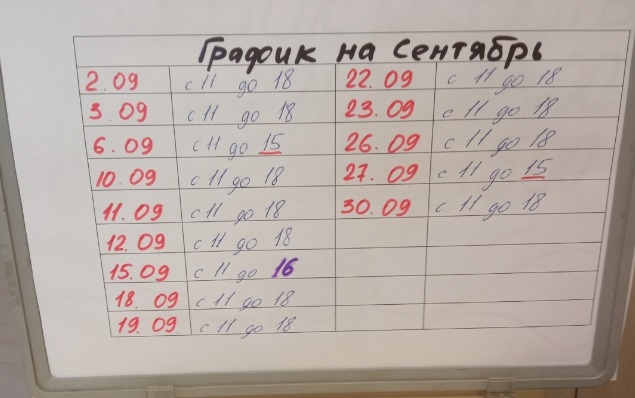 График на Сентябрь
2.09 с 11 до 18 22.09 с 11 до 18
3.09 с 11 до 18 23.09 с 11 до 18
6.09 с 11 до 15 26.09 с 11 до 18
10.09 с 11 до 18 27.09 с 11 до 15
11.09 с 11 до 18 30.09 с 11 до 18
12.09 с 11 до 18
15.09 с 11 до 16
18.09 с 11 до 18
19.09 с 11 до 18